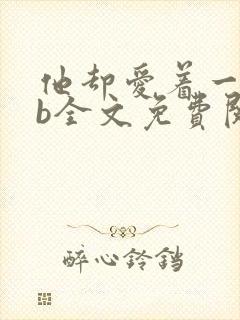 他却爱着一
b全文免費閱
醉心铃铛